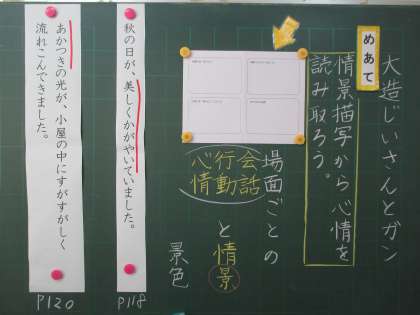 大造じいさんとガン
めあて
情景描写から心情を
読み取ろう。
場面ごとの
会話
行動
心情
と情景
景色
秋の日が、美しくかがやいていました。
P118
あかつきの光が、小屋の中にすがすがしく
流れこんできました。
P120